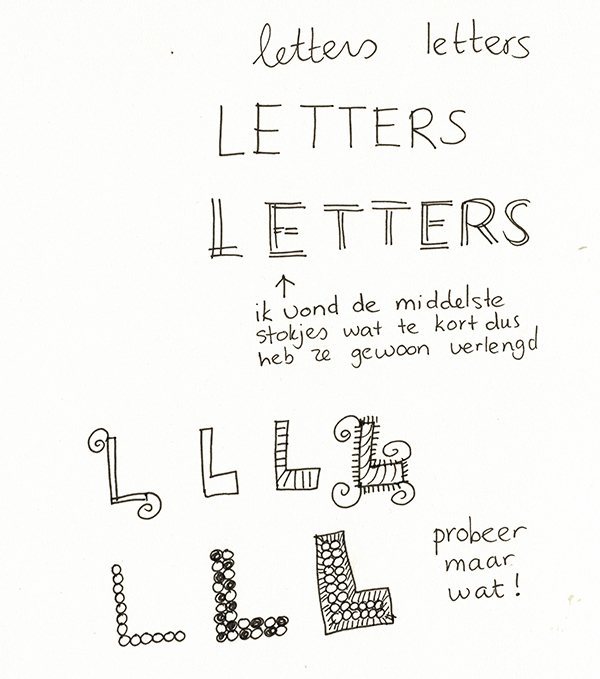 letters letters
LETTERS
LETTERS
ik vond de middelste
stokjes wat te kort dus
heb ze gewoon verlengd
L L L L
probeer
maar
wat!
L L L